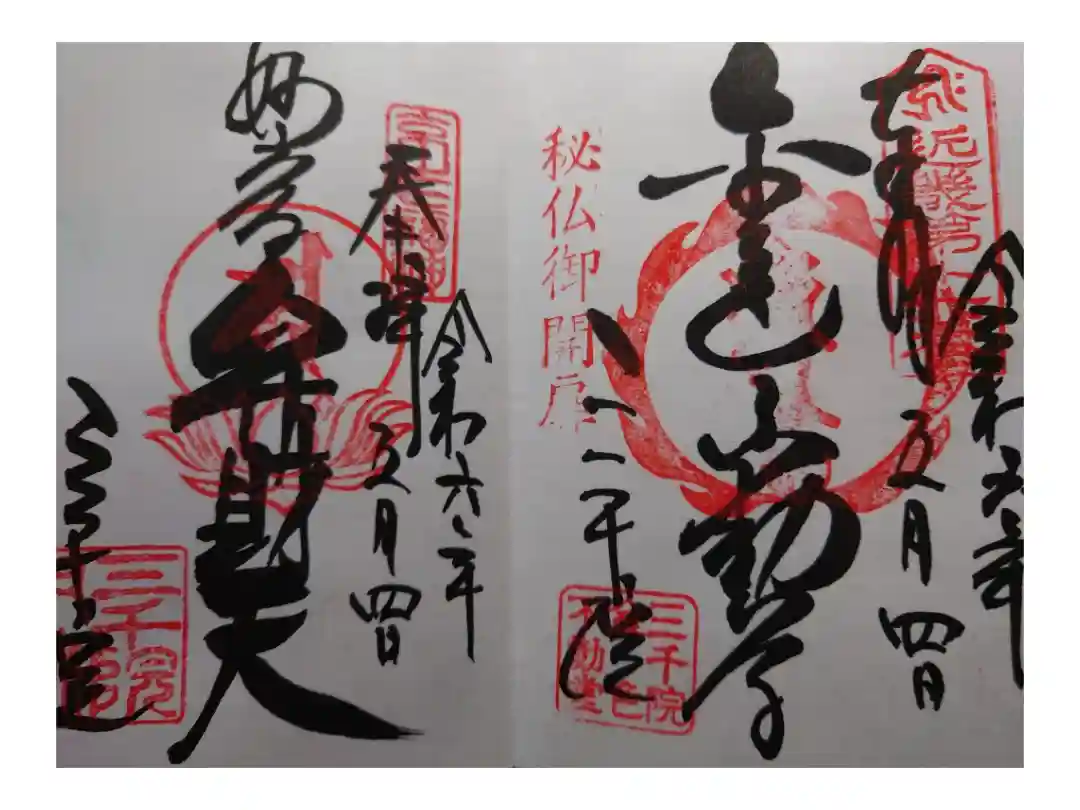 奉拝
令和六年
五月四日
金色不動尊
秘仏御開扉
三千院
三千院
奉拝
令和六年
五月四日
妙音弁財天
三千院
三千院